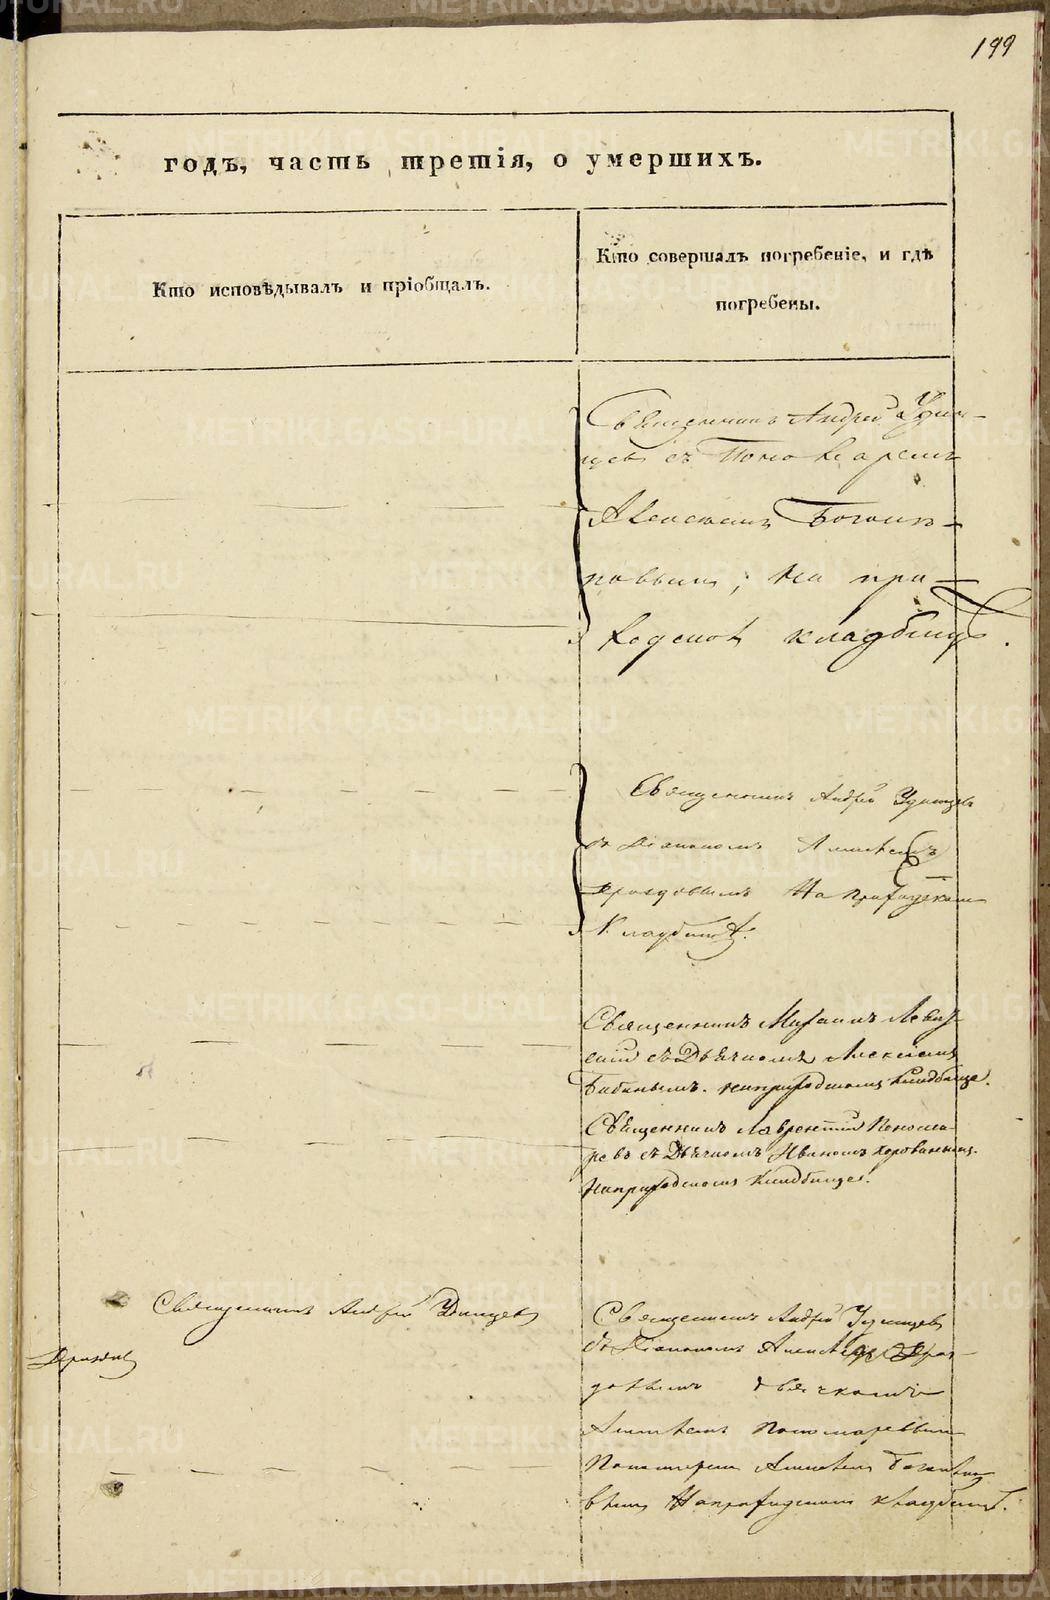 199
годъ, часть третія, о умершихъ.
Кто исповѣдывалъ и пріобщалъ.
Кто совершалъ погребеніе, и гдѣ
погребены.
Священникъ Андрей Удин-
цевъ съ Пономаремъ
Алексѣемъ Богомо-
ловымъ, на при-
ходскомъ кладбищѣ.
Священникъ Андрей Удинцевъ
съ Діакономъ Алексѣемъ
Дроздовымъ На Приходскомъ
Кладбищѣ.
Священникъ Михаилъ Левит-
скій съ Дьячкомъ Алексіемъ
Бабинымъ. на приходскомъ кладбище.
Священникъ Лаврентій Понома-
ревъ съ Дьячкомъ Иваномъ
На приходскомъ кладбище.
Священникъ Андрей Удинцев
Дроздов
Священникъ Андрей Удинцев
съ Діакономъ Алексѣемъ Дроз-
довымъ дьячкомъ
Алексѣемъ Пономаревымъ
Пономаремъ Алексѣем
На приходскомъ кладбищѣ.
METRIKI.GASO-URAL.RU